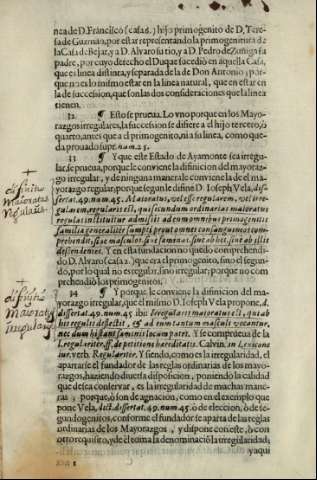 nea de D. Francisco (casa 6.) hijo primogenito de D. Tere-
sa de Guzman, por estar representando la primogenitura de
la Casa de Bejar, y a D. Alvaro su tio, y a D. Pedro de Zuñiga su
padre, por cuyo derecho el Duque sucedió en aquella Casa,
que es linea distinta, y separada de la de Don Antonio; por-
que no es lo mismo estar en la linea natural, que en estar en
la de succession, que son las dos consideraciones que la linea
tienen.
32. ¶ Esto se prueua. Lo vno porque en los Mayo-
razgos irregulares, la succession se difiere a el hijo tercero, ò
quarto, antes que a el primogenito, ni a su linea, como que-
da prouado supr. num. 25.
33 ¶ Y que este Estado de Ayamonte sea irregu-
lar, se prueua, porque le conviene la difinicion del mayoraz-
go irregular, y de ninguna manera le conviene la de el ma-
yorazgo regular, porque segun le difine D. Ioseph Vela, dis-
sertat. 49. num. 45. Maioratus, vel est regularem, vel irre-
gularem, regularis est, qui secundum ordinarias maioratus
regulas instituitur admissis ad eum omnibus primogenitis
familiæ generaliter sumptis prout omnes consanguineos com-
prehendit, siue masculos, siue fæminas, sint ab his, sint ab illis
descendentes. Y en esta fundacion no quedo comprehendi-
do D. Alvaro (casa 2.) que era el primogenito, sino el segun-
do, por lo qual no es regular, sino irregular; porque no com-
prehendió los primogenitos.
34 ¶ Y porque le conviene la difinicion del ma-
yorazgo irregular, que el mismo D. Ioseph Vela propone, d.
dissertat. 49. num. 45. ibi: Irregularis maioratus est, qui ab
his regulis deflectit, & ad eum tantum masculi vocantur,
nec dum his stant fæminis locum patet. Y se comprueua de la
l. regulariter. ff. de petitione hereditatis. Calvin. in Lexicone
iur. verb. Regulariter. Y siendo, como es la irregularidad, el
apartarse el fundador de las reglas ordinarias de los mayo-
razgos, haziendo diuersa disposicion, poniendo la calidad
que desea conservar, es la irregularidad de muchas mane-
ras; porque, ò son de agnacion, como en el exemplo que
pone Vela, dict. dissertat. 49. num. 45. ò de eleccion, ò de se-
gundogenitos, conforme el fundador se aparta de las reglas
ordinarias de los Mayorazgos, y dispone con este, ò con
otro requisito, y de el toma la denominació la irregularidad,
y aqui
difinitio
maioratus
regularis
difinitio
maioratus
irregularis